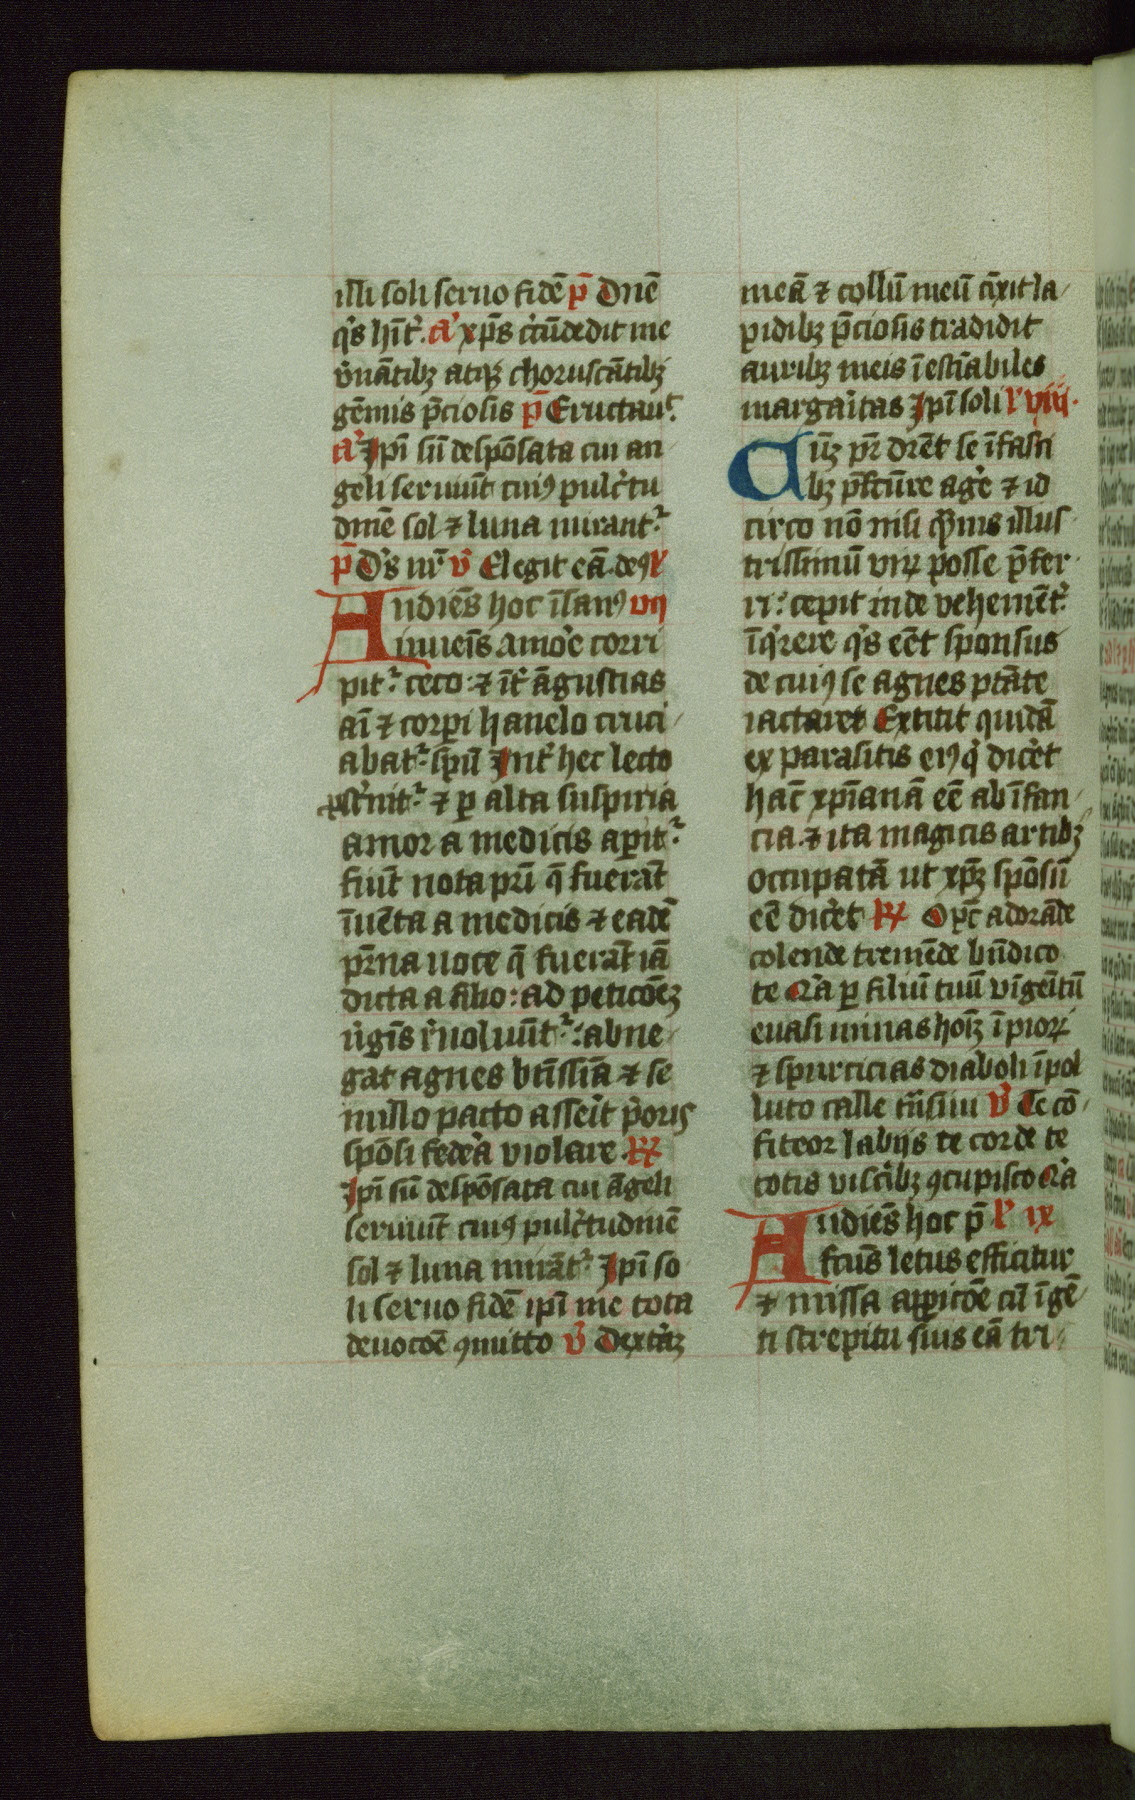 illi soli seruo fidē p̄ Dn̄e
q̇s hīt̉. a̓ xp̄s ċcūdedit me
v̉nātibꝫ atqꝫ choruscātibꝫ
gēmis p̄ciosis p̄ Eructauꝰ
a̓ Jpī sū despōsata cui an
geli seruiūt cuiꝰ pulc̉tu
dinē sol ⁊ luna mirant᷑
p̄ Ds̉ nr̄ v̉ Elegit eā deꝰ l̓
Audiēs hoc īsanꝰ vij
iuueīs amor̉e corri
pit᷑ ceco: ⁊ īt̉ āgustias
aī ⁊ corpi hanelo cruci
abat᷑ spū Jnt̉ hec lecto
ꝓst̉nit᷑ ⁊ ꝑ alta suspiria
amor a medicis apit᷑
fiūt nota pr̄i q̄ fuerāt
īuēta a medicis ⁊ eadē
pr̄na uoce q̄ fuerāt iā
dicta a filio: ad peticōeꝫ
v̉gīs r̉uoluūt᷑: abne
gat agnes btīssīa ⁊ se
nullo pacto asseīt p̉oris
spōsi feder̉a violare ꝶ
Jpī sū despōsata cui āgeli
seruiūt cuiꝰ pulc̉tudinē
sol ⁊ luna mirāt᷑ Jpī so
li seruo fidē ipī me tota
deuocōe ꝯmitto v̉ Dext̉aꝫ
meā ⁊ collū meū cīxit la
pidibꝫ p̄ciosis tradidit
auribꝫ meis īestīabiles
margaritas Jpī soli l̓ viij
Cūꝫ pr̄ dicet̉ se ī fasci
bꝫ p̄fcūre ager̉e ⁊ id
circo nō nisi quis illus
trissimū viꝝ posse p̄fer
ri: cepit inde vehemēt̉
īq̇rere q̇s eēt sponsus
de cuiꝰ se agnes ptāte
iactaret Extitit quidā
ex parasitis eiꝰ q̇ dic̉et
hāc xp̄ianā eē ab īfan
cia ⁊ ita magicis artibꝫ
occupatā ut xp̄ꝫ spōsū
eē dic̉et ꝶ Opc̄ adorāde
colende tremēde bn̄dico
te Q̉a ꝑ filiū tuū vīgeītū
euasi minas hoīꝫ īpioꝝ
⁊ spurcicias diaboli īpol
luto calle tn̄siui v̉ Te cō
fiteor labijs te corde te
totis visc̉ibꝫ ꝯcupisco Q̉a
Audiēs hoc p̄ l̓ ix
fcūs letus efficitur
⁊ missa apparicōe cū īgē
ti strepitu suis eā tri